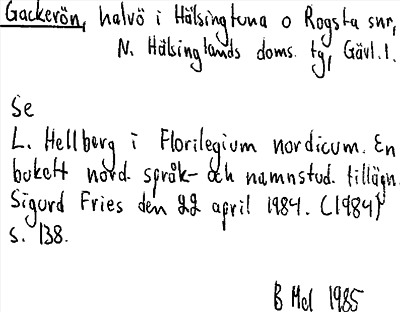 Gackerön, halvö i Hälsingtuna o Rogsta snr,
N. Hälsinglands doms. tg, Gävl. l.
Se
L. Hellberg i Florilegium nordicum. En
bukett nord. språk- och namnstud. tillägn.
Sigurd Fries den 22 april 1984. (1984)
s. 138.
B Mel 1985